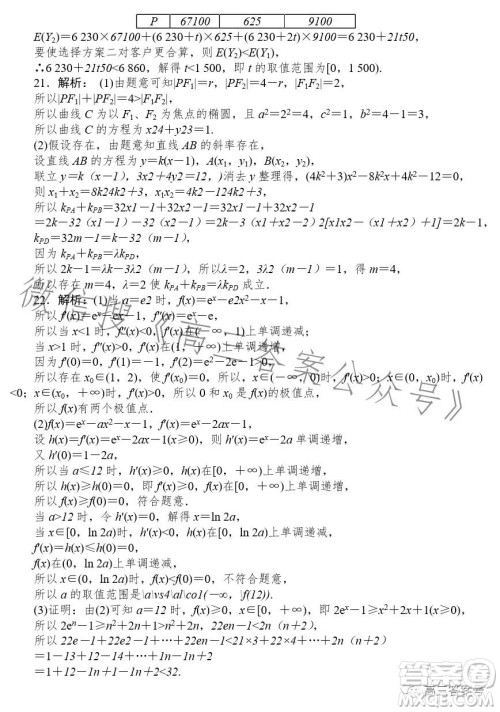 P 67100 625 9100
E(Y₂)=6 230×67100+(6 230+t)×625+(6 230+2t)×9100=6 230+21t50,
要使选择方案二对客户更合算，则 E(Y₂)<E(Y₁)，
∴6 230+21t50<6 860，解得 t<1 500，即 t 的取值范围为[0，1 500).
21．解析：(1)由题意可知|PF₁|=r，|PF₂|=4－r，|F₁F₂|=2，
所以|PF₁|+|PF₂|=4>|F₁F₂|，
所以曲线 C 为以 F₁、F₂为焦点的椭圆，且 a²=2²=4，c²=1，b²=4－1=3，
所以曲线 C 的方程为 x24+y23=1.
(2)假设存在，由题意知直线 AB 的斜率存在，
设直线 AB 的方程为 y=k(x－1)，A(x₁，y₁)，B(x₂，y₂)，
联立 y=k（x－1），3x2+4y2=12，)消去 y 整理得，(4k²+3)x²－8k²x+4k²－12=0，
则 x₁+x₂=8k24k2+3，x₁x₂=4k2－124k2+3，
所以 kPA+kPB=32x1－1+32x2－1=32x1－1+32x2－1
=2k－32（x1－1）－32（x2－1）=2k－3（x1+x2－2）2[x1x2－（x1+x2）+1]=2k－1，
kPD=32m－1=k－32（m－1），
因为 kPA+kPB=λkPD，
所以 2k－1=λk－3λ2（m－1），所以λ=2，3λ2（m－1）=1，得 m=4，
所以存在 m=4，λ=2 使 kPA+kPB=λkPD成立．
22．解析：(1)当 a=e2 时，f(x)=eˣ－e2x²－x－1，
所以 f′(x)=eˣ－ex－1，f″(x)=eˣ－e，
所以当 x<1 时，f″(x)<0，f′(x)在(－∞，1)上单调递减；
当 x>1 时，f″(x)>0，f′(x)在(1，+∞)上单调递增，
因为 f′(0)=0，f′(1)=－1，f′(2)=e²－2e－1>0，
所以存在 x₀∈(1，2)，使 f′(x₀)=0，所以，x∈(－∞，0)时，f′(x)>0；x∈(0，x₀)时，f′(x)
<0；x∈(x₀，+∞)时，f′(x)>0，所以 0 和 x₀是 f(x)的极值点，
所以 f(x)有两个极值点．
(2)f(x)=eˣ－ax²－x－1，f′(x)=eˣ－2ax－1，
设 h(x)=f′(x)=eˣ－2ax－1(x≥0)，则 h′(x)=eˣ－2a 单调递增，
又 h′(0)=1－2a，
所以当 a≤12 时，h′(x)≥0，h(x)在[0，+∞)上单调递增，
所以 h(x)≥h(0)=0，即 f′(x)≥0，f(x)在[0，+∞)上单调递增，
所以 f(x)≥f(0)=0，符合题意．
当 a>12 时，令 h′(x)=0，解得 x=ln 2a，
当 x∈[0，ln 2a)时，h′(x)<0，h(x)在[0，ln 2a)上单调递减，
f′(x)=h(x)≤h(0)=0，
f(x)在(0，ln 2a)上单调递减，
所以 x∈(0，ln 2a)时 f(x)<f(0)=0，不符合题意，
所以 a 的取值范围是\a\vs4\al\co1(－∞，\f(12)).
(3)证明：由(2)可知 a=12 时，f(x)≥0，x∈[0，+∞)，即 2eˣ－1≥x²+2x+1，x∈[0，+∞)，
所以 2eⁿ－1≥n²+2n+1>n²+2n，22en－1<2n（n+2），
所以 22e－1+22e2－1+…+22en－1<21×3+22×4+…+2n（n+2）
=1－13+12－14+…+1n－1n+2
=1+12－1n+1－1n+2<32.
微信搜《高三答案公众号》
高三答案号